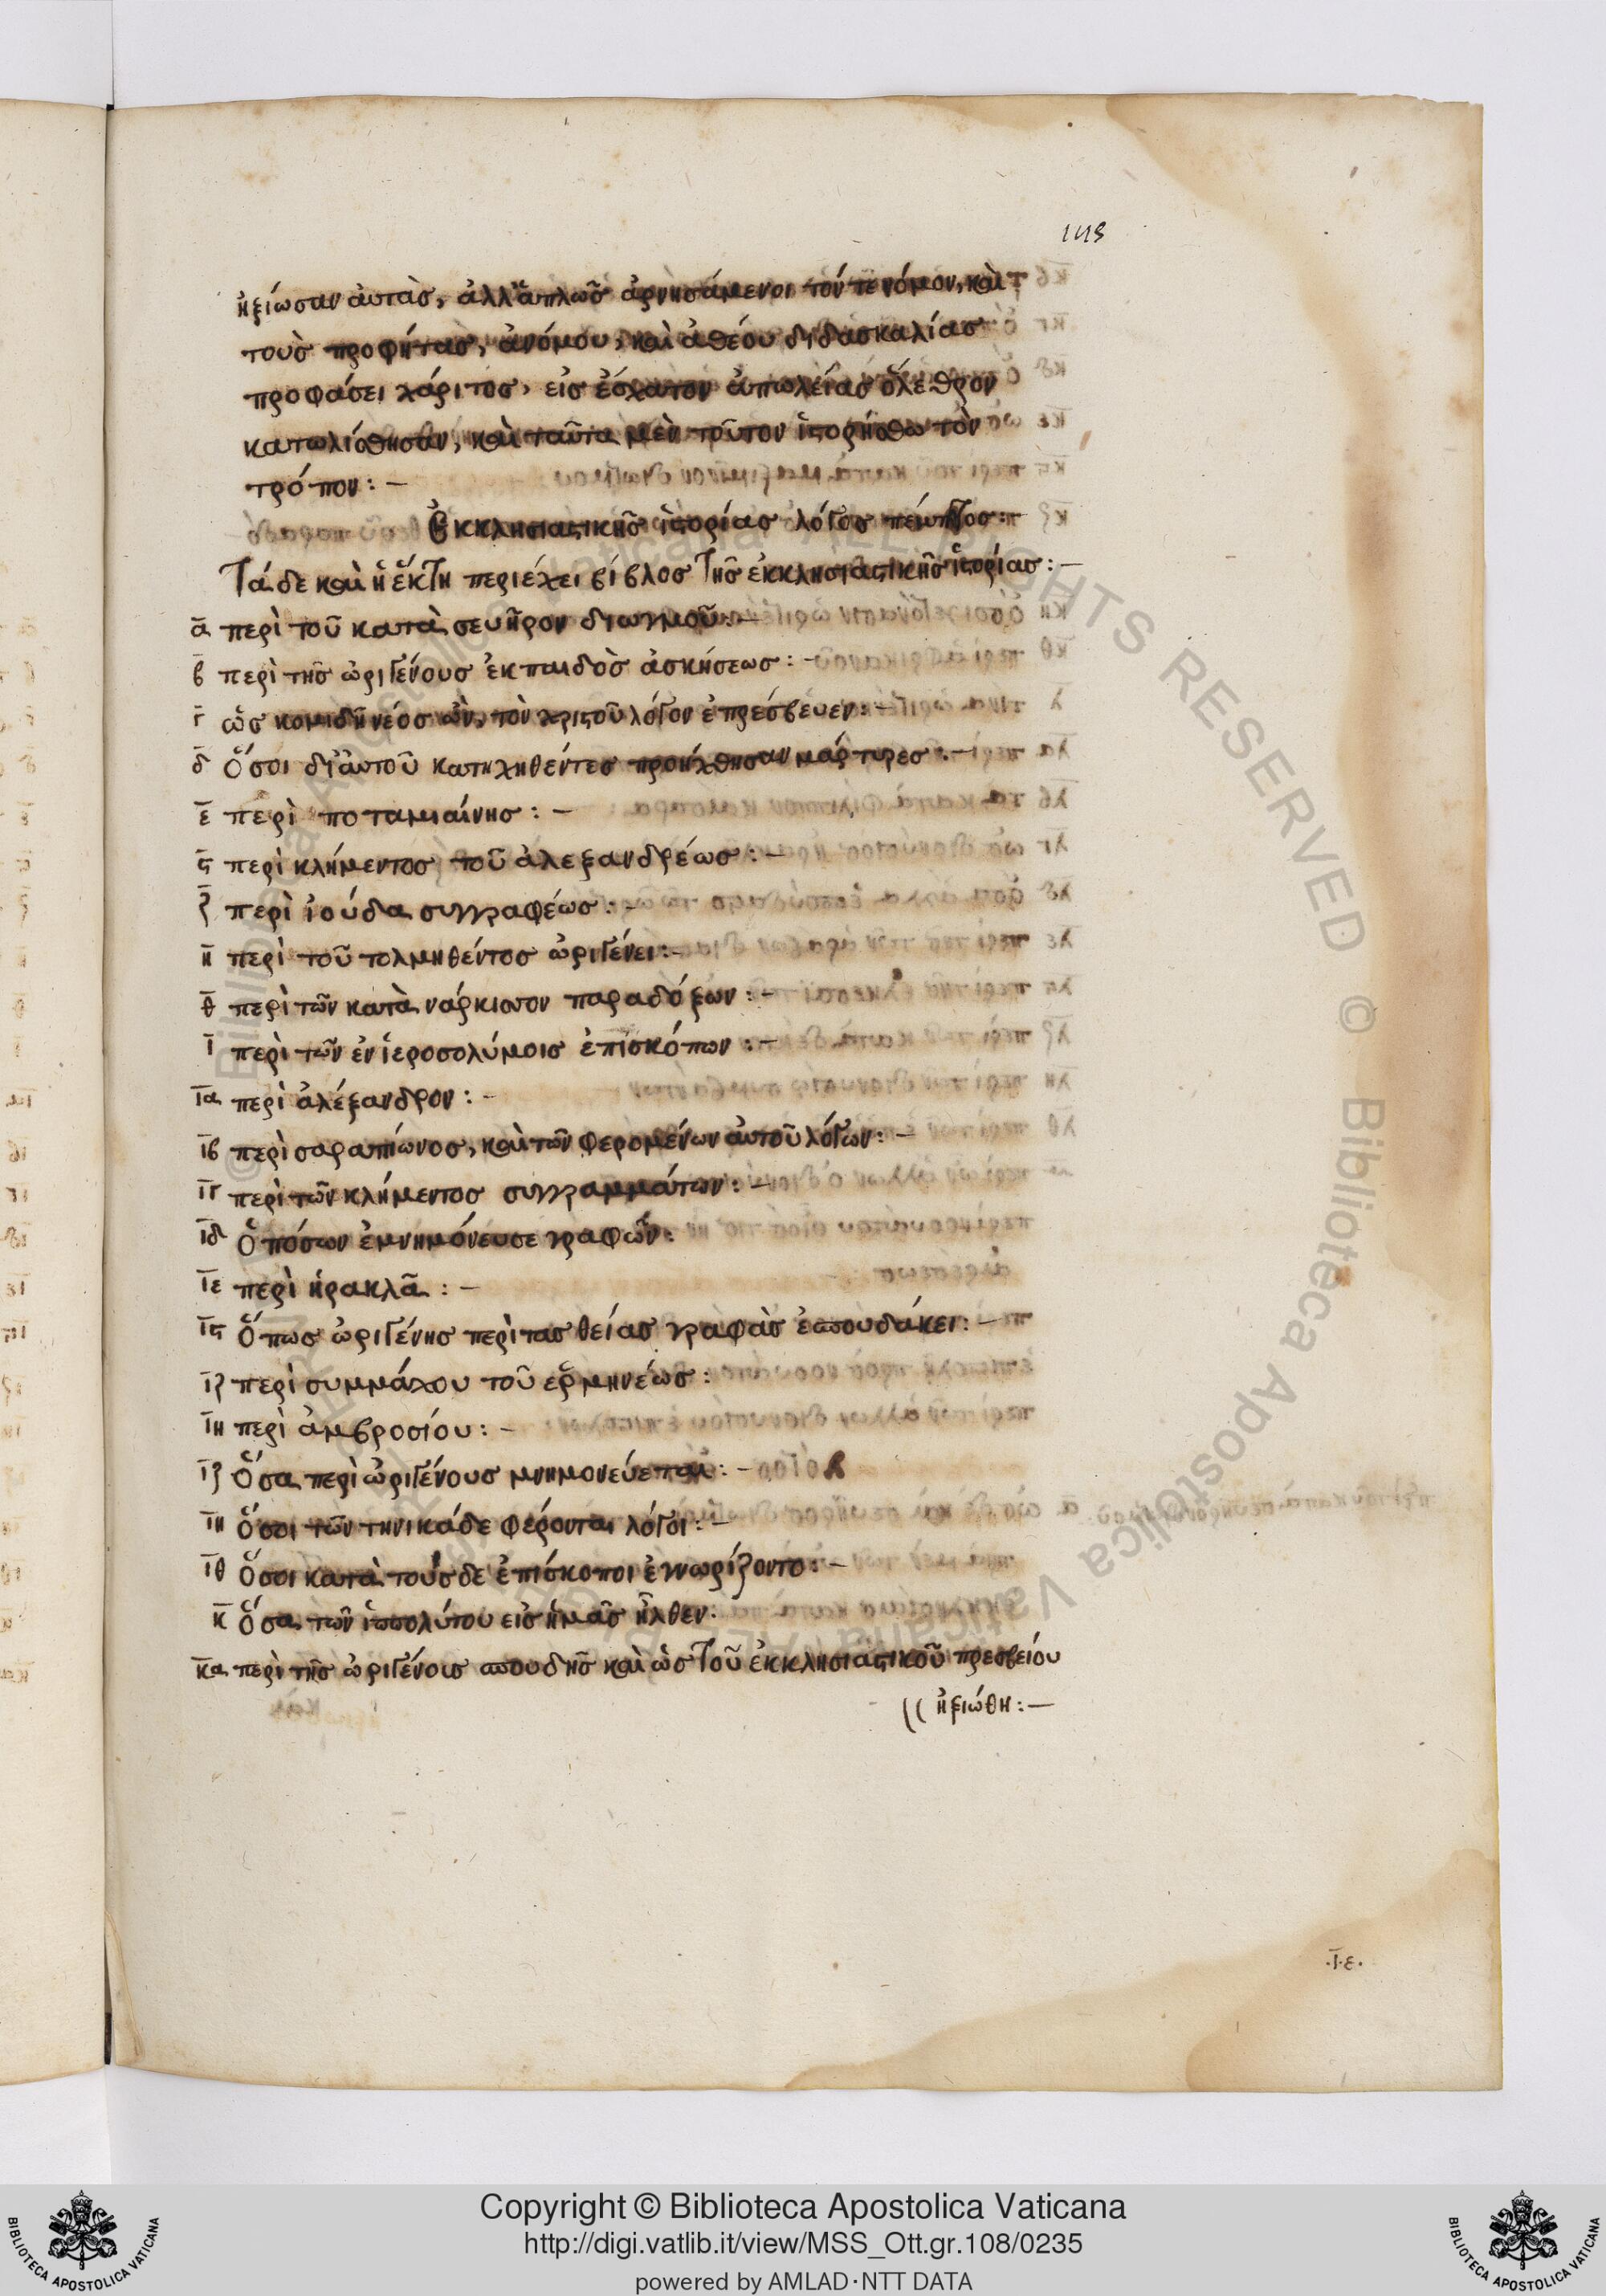 113
ἠξίωσαν ἀυτὰσ, ἀλλ' ἁπλῶσ ἀρνησάμενοι τόν τε νόμον, καὶ
τουσ προφήτασ, ἀνόμου, καὶ ἀθέου διδασκαλίασ
προφάσει χάριτοσ, εἰσ ἔσχατον ἀπωλείασ ὄλεθρον
κατωλίσθησαν, καὶ ταῦτα μὲν τοῦτον ἱστορήσθω τὸν
τρόπον: –
Ἐκκλησιαστικῆσ ἱστορίασ λόγοσ πέμπτοσ: –
Τάδε καὶ ἡ ἕκτη περιέχει βίβλοσ τῆσ ἐκκλησιαστικῆσ ἱστορίασ: –
α περὶ τοῦ κατὰ σευῆρον διωγμοῦ: –
β περὶ τῆσ ὠριγένουσ ἐκ παιδὸσ ἀσκήσεωσ: –
γ ὡσ κομιδῆ νέοσ ὢν, τὸν χριστοῦ λόγον ἐπρέσβευεν: –
δ ὅσοι δι' ἀυτοῦ κατηχηθέντεσ προήχθησαν μάρτυρεσ: –
ε περὶ ποταμιαίνησ: –
ϛ περὶ κλήμεντοσ τοῦ ἀλεξανδρέωσ: –
ζ περὶ ἰούδα συγγραφέωσ: –
η περὶ τοῦ τολμηθέντοσ ὠριγένει: –
θ περὶ τῶν κατὰ νάρκισσον παραδόξων: –
ι περὶ τῶν ἐν ἱεροσολύμοισ ἐπισκόπων: –
ια περὶ ἀλέξανδρον: –
ιβ περὶ σαραπίωνοσ, καὶ τῶν φερομένων ἀυτοῦ λόγων: –
ιγ περὶ τῶν κλήμεντοσ συγγραμμάτων: –
ιδ ὁπόσων ἐμνημόνευσε γραφῶν:
ιε περὶ ἡρακλᾶ: –
ιϛ ὅπωσ ὠριγένησ περὶ τασ θείασ γραφὰσ ἐσπουδάκει: –
ιζ περὶ συμμάχου τοῦ ἑρμηνέωσ:
ιη περὶ ἀμβροσίου: –
ιζ ὅσα περὶ ὠριγένουσ μνημονεύεται: –
ιη ὅσοι τῶν τηνικάδε φέρονται λόγοι: –
ιθ ὅσοι κατὰ τούσδε ἐπίσκοποι ἐγνωρίζοντο: –
κ ὅσα τῶν ἱππολύτου εἰσ ἡμᾶσ ἦλθεν:
κα περὶ τῆσ ὠριγένουσ σπουδῆσ καὶ ὡσ τοῦ ἐκκλησιαστικοῦ πρεσβείου
ἠξιώθη: –
.ι.ε.
© Biblioteca Apostolica Vaticana / ALL RIGHTS RESERVED
Copyright © Biblioteca Apostolica Vaticana
http://digi.vatlib.it/view/MSS_Ott.gr.108/0235
powered by AMLAD·NTT DATA
BIBLIOTECA APOSTOLICA VATICANA
BIBLIOTECA APOSTOLICA VATICANA